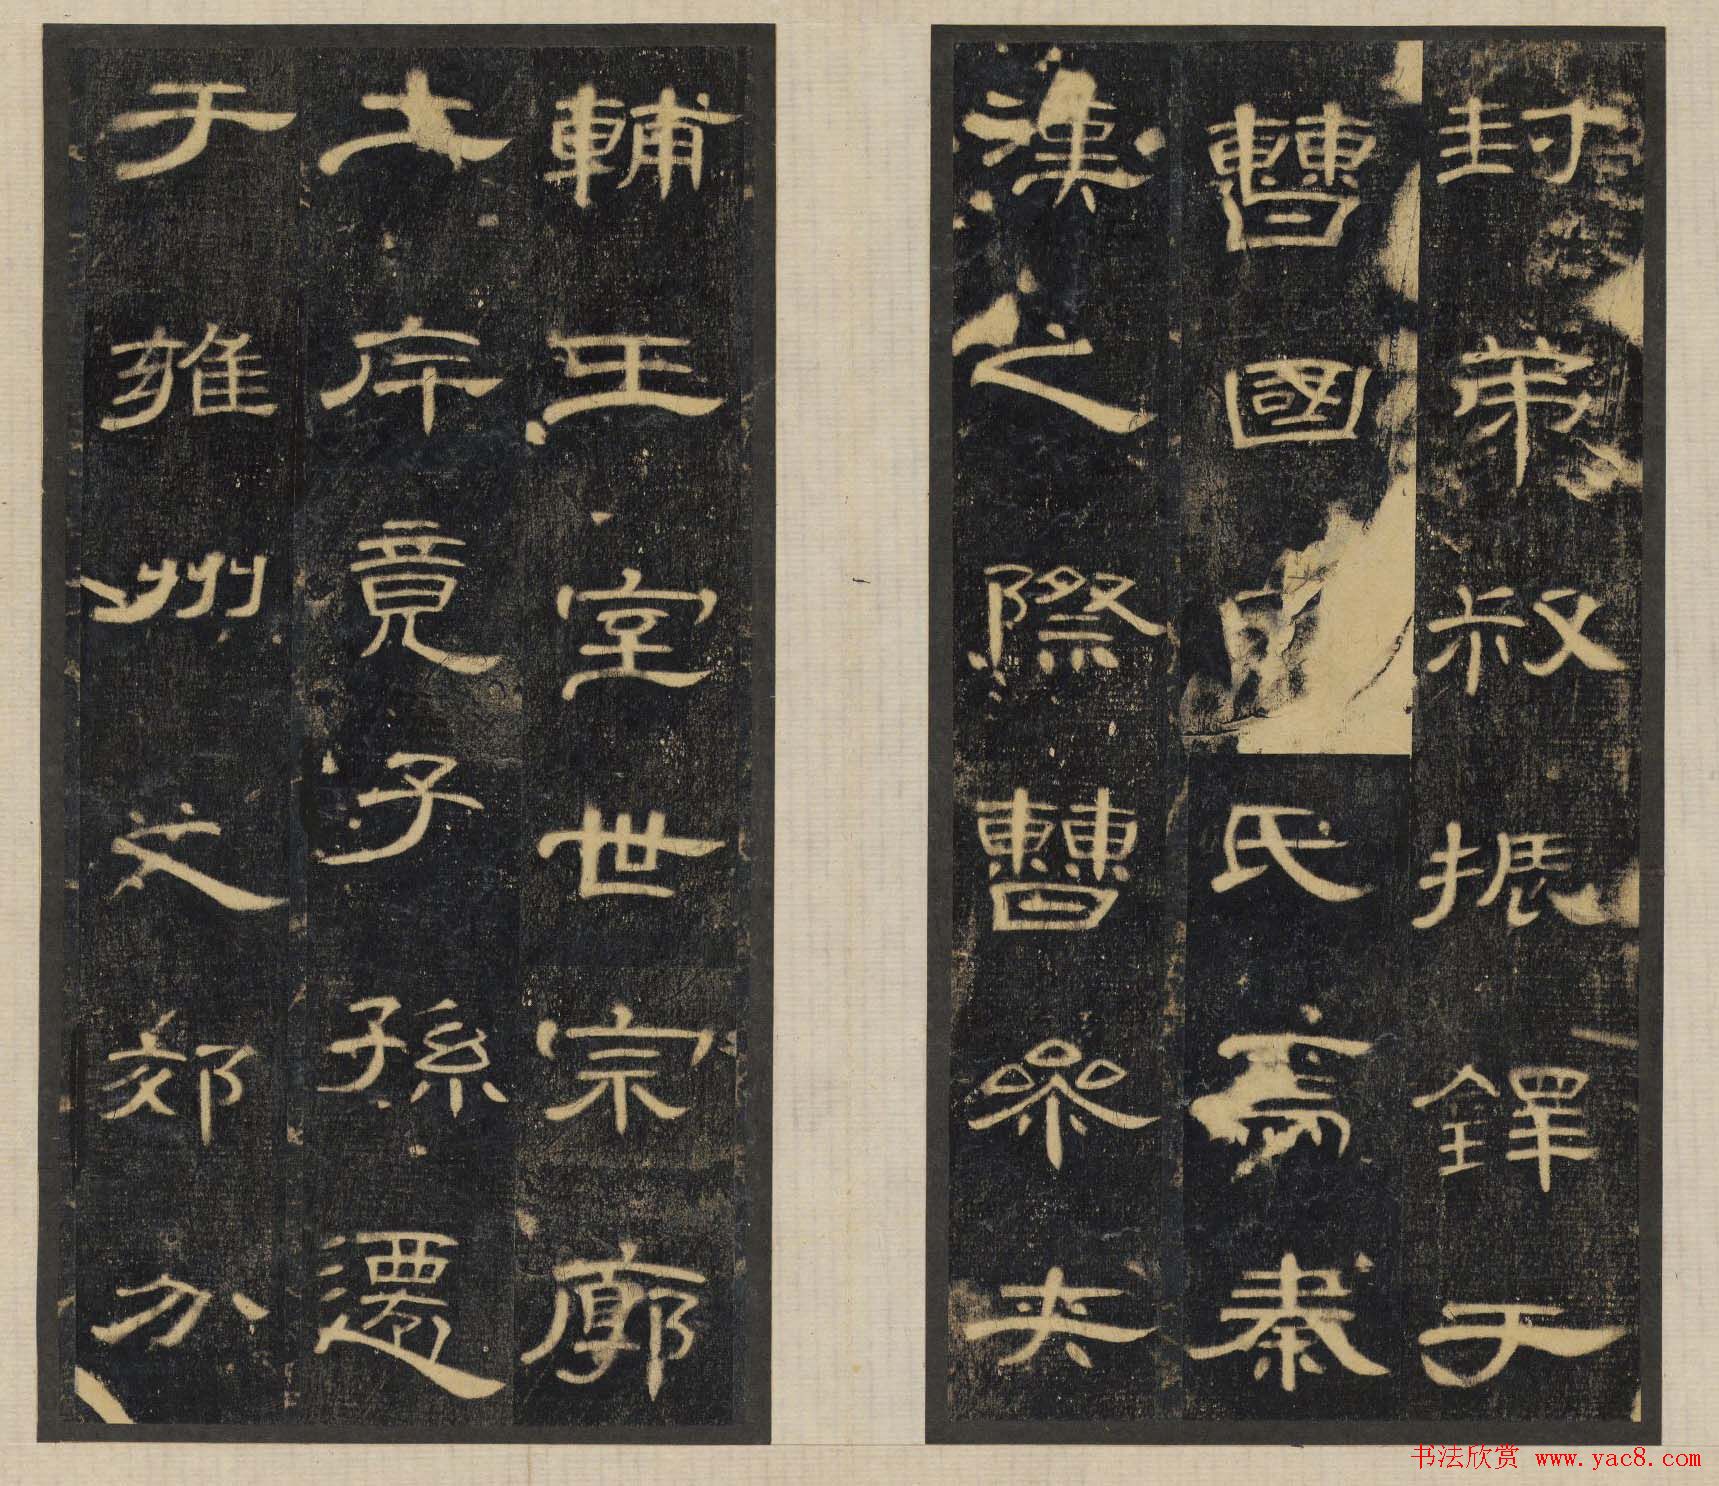 封弟叔振鐸于
曹國氏焉秦
漢之際曹參夾
輔王室世宗廓
土斥竟子孫遷
于雍州之郊分
书法欣赏 www.yac8.com